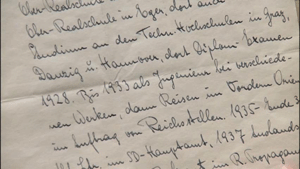 Ober-Realschule
Ober-Realschule in Eger, dort auch
Studium an den Techn. Hochschulen in Graz,
Danzig u. Hannover, dort Diplom-Examen
1928. Bis 1933 als Ingenieur bei verschie-
nen Werken, dann Reisen im Vordern Orient
im Auftrag von Reichstellen. 1935- Ende 3
im SD-Hauptamt, 1937 Auslands
R. Propagan